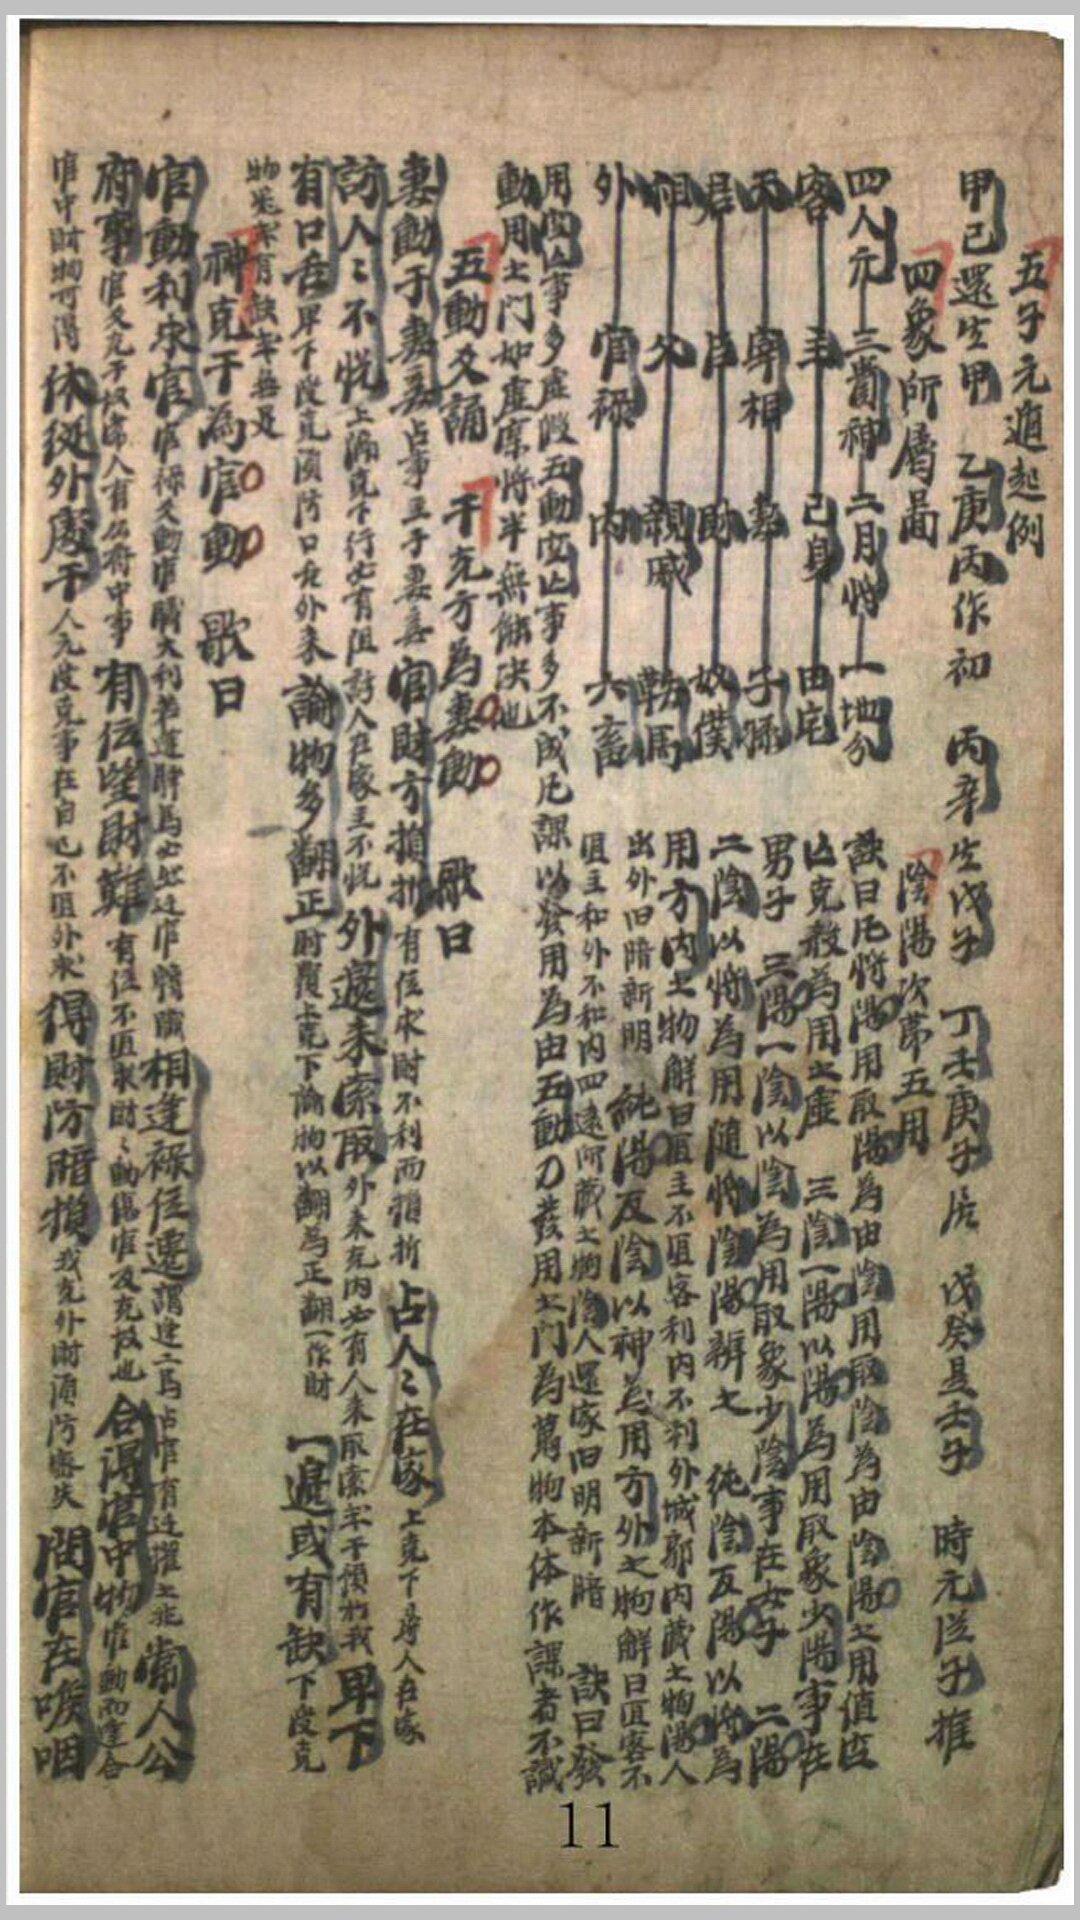 五子元遁起例
甲己還生甲 乙庚丙作初 丙辛生戊子 丁壬庚子居 戊癸是壬子 時元從子推
四象所屬啚
四人元 三貴神 二月將 一地分
客 主 己身 田宅
天 宰相 妻 子孫
君 臣 財 奴僕
祖 父 親戚 鞍馬
外 官祿 內 六畜
陰陽次第五用
訣曰凡將陽用取陽為由陰用取陰為由陰陽之用值空
亡克殺為用之虛 三陰一陽以陽為用取象少陽事在
男子 三陽一陰以陰為用取象少陰事在女子 二陽
二陰以將為用隨將陰陽辨之 純陰反陽以將為
用方內之物解曰匝主不匝客利內不利外城郭內藏之物陽人
出外旧暗新明 純陽反陰以神為用方外之物解曰匝客不
匝主和外不和內四遠所藏之物陰人還家旧明新暗 訣曰發
用空亡事多虛假五動空亡事多不成凡課以發用為由五動乃發用之門為萬物本体作課者不識
動用之門如虛席將半無能決也
五動爻誦 干克方為妻動 歌曰
妻動于妻妾占事主于妻妾 官財方損折 有住求財不利而損折 占人〻在家 上克下尋人在家
訪人〻不悅 上漏克下行必有阻訪人在家主不悅 外邊來索取 外來克內必有人來取索年干預於我 卑下
有口舌 卑下受克須防口舌外來 論物多翻正 財覆上克下論物以翻為正翻一作財 一邊或有缺 下受克
物業家有缺年無是
神克干為官動 歌曰
官動利求官 官祿爻動官職大利若逢驛馬必然遷官轉職 相逢祿位遷 謂逢二馬占官有遷擢之兆 常人公
府事 官爻克干故常人有公府中事 有位望財難 有位不匝求財〻動傷官及克故也 合得官中物 官動而逢合
官中財物可得 休從外處干 人元受克事在自己不匝外求 得財防暗損 我克外財須防密失 問官在喉咽
11